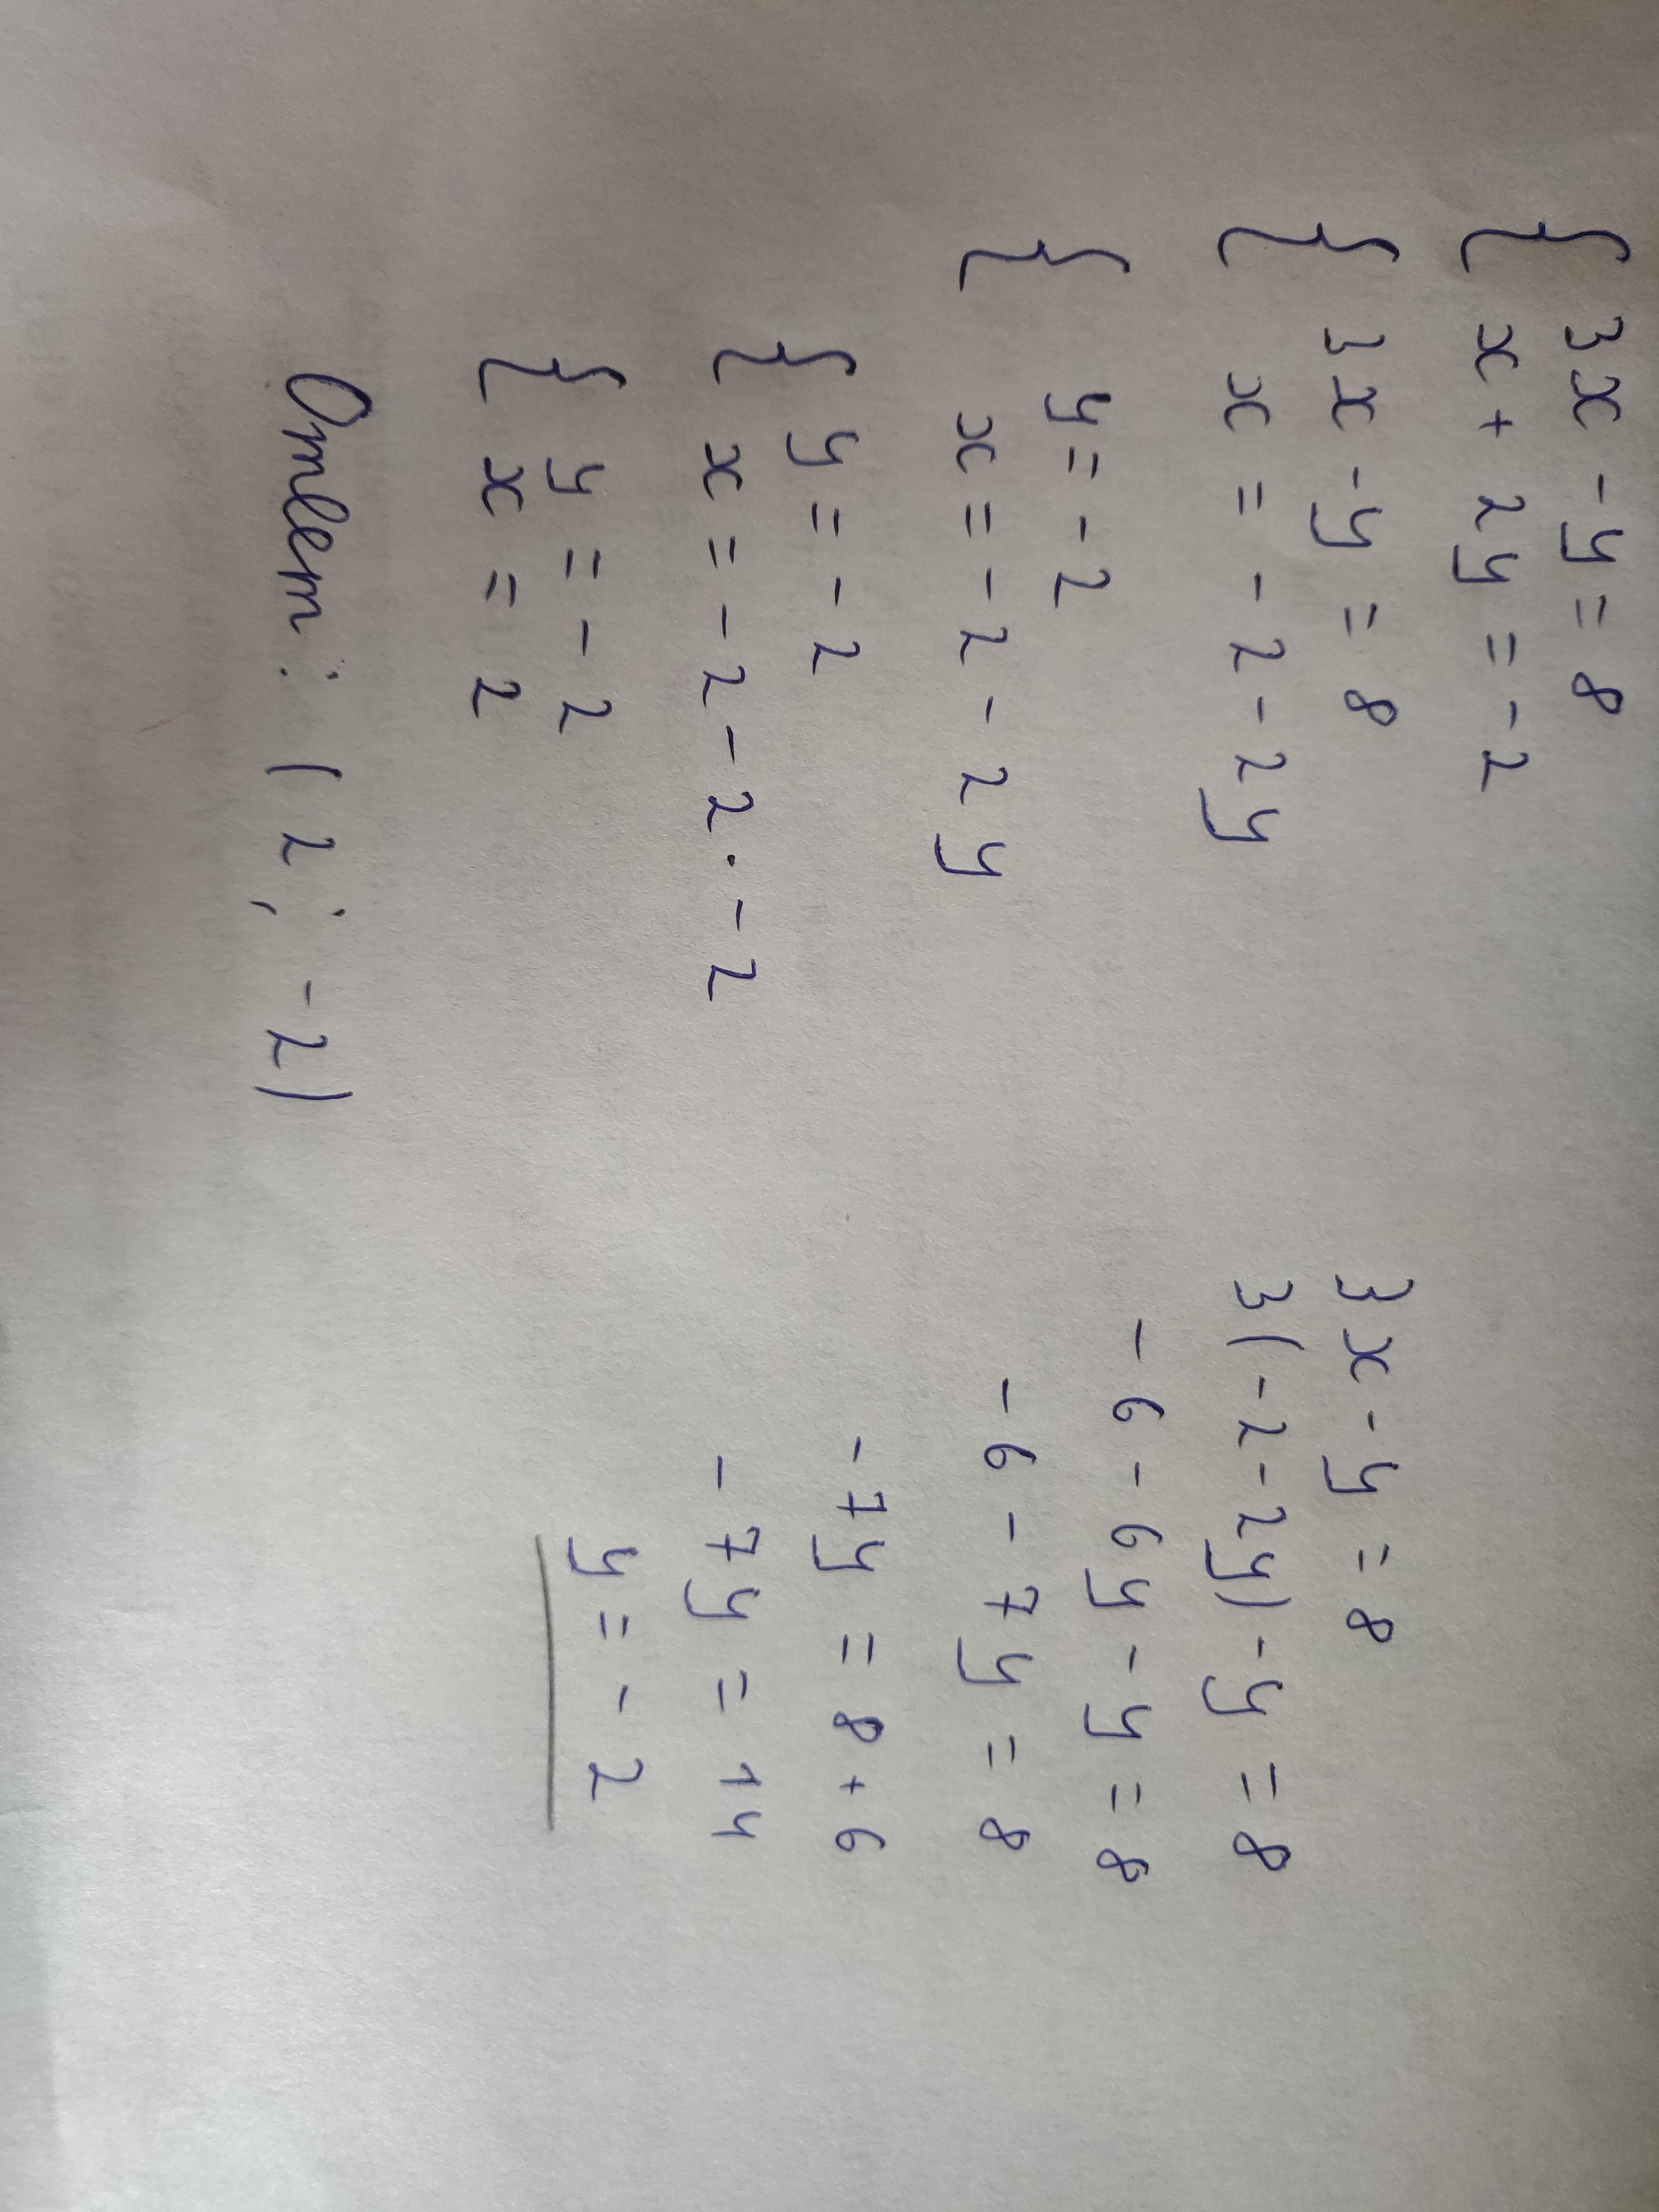 { 3x - y = 8
x + 2y = -2
{ 3x - y = 8
x = -2 - 2y
{ y = -2
x = -2 - 2y
{ y = -2
x = -2 - 2 · -2
{ y = -2
x = 2
Ответ: (2; -2)
3x - y = 8
3(-2 - 2y) - y = 8
-6 - 6y - y = 8
-6 - 7y = 8
-7y = 8 + 6
-7y = 14
y = -2